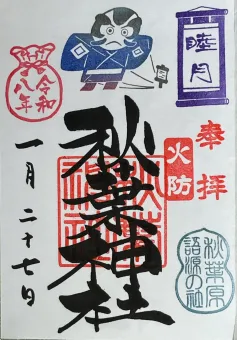 睦月
奉拝
火防
秋葉神社
秋葉原
語源の社
令和
八年
一月二十七日